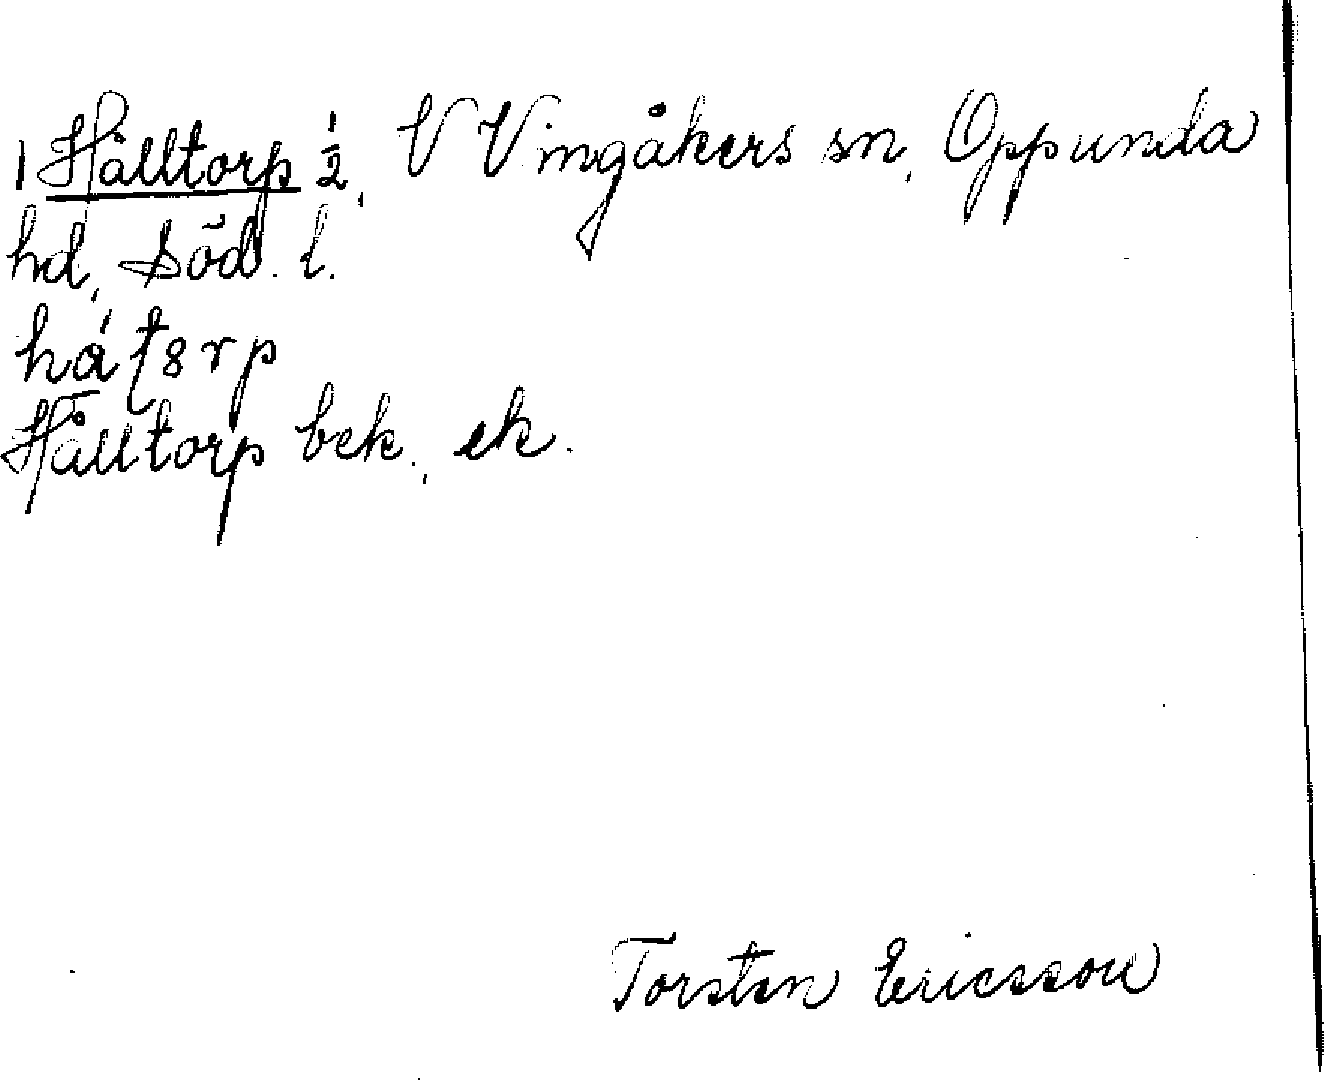 1 Hålltorp ½, V Vingåkers sn, Oppunda
hd, Söd. l.
hǻʈ8rp
Hålltorp bek., ek.
Torsten Ericsson